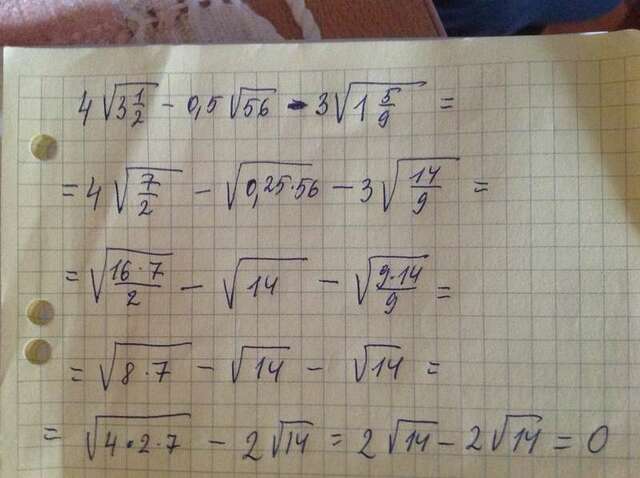 4√3 1/2 - 0,5√56 - 3√1 5/9 =
= 4√7/2 - √0,25·56 - 3√14/9 =
= √16·7/2 - √14 - √9·14/9 =
= √8·7 - √14 - √14 =
= √4·2·7 - 2√14 = 2√14 - 2√14 = 0